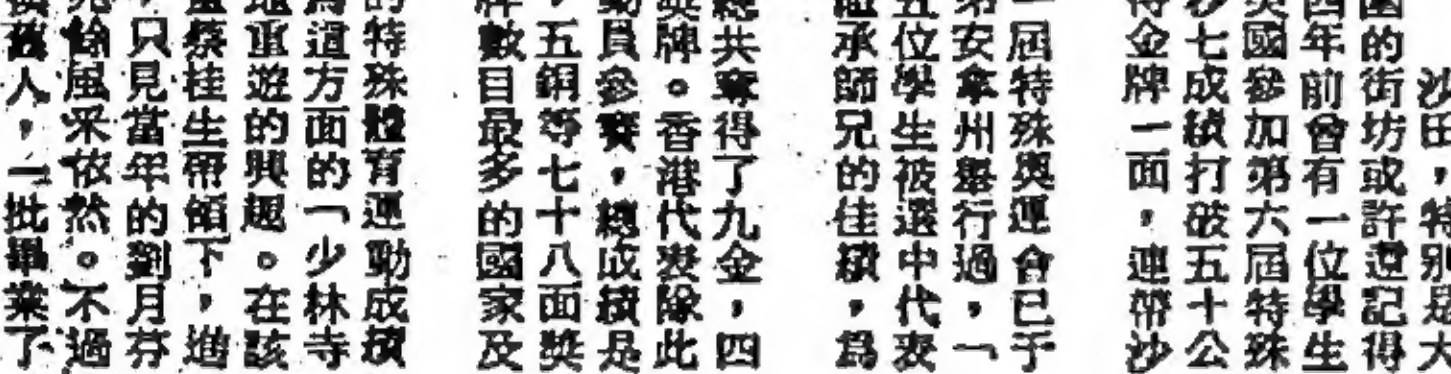 沙田，特別是大
園的街坊或許還記得
四年前曾有一位學生
英國參加第六屆特殊
沙七成績打破五十公
得金牌二面，連帶沙
一屆特殊奧運會已于
第安拿州舉行過，「
五位學生被選中代表
繼承師兄的佳績，爲
總共奪得了九金，四
獎牌。香港代表隊此
動員參賽，總成績是
，五銅等七十八面獎
牌數目最多的國家及
的特殊體育運動成績
爲這方面的「少林寺
地重遊的興趣。在該
蔡桂生帶領下，進
，只見當年的劉月芬
餘風采依然。不過
孩人，一批畢業了